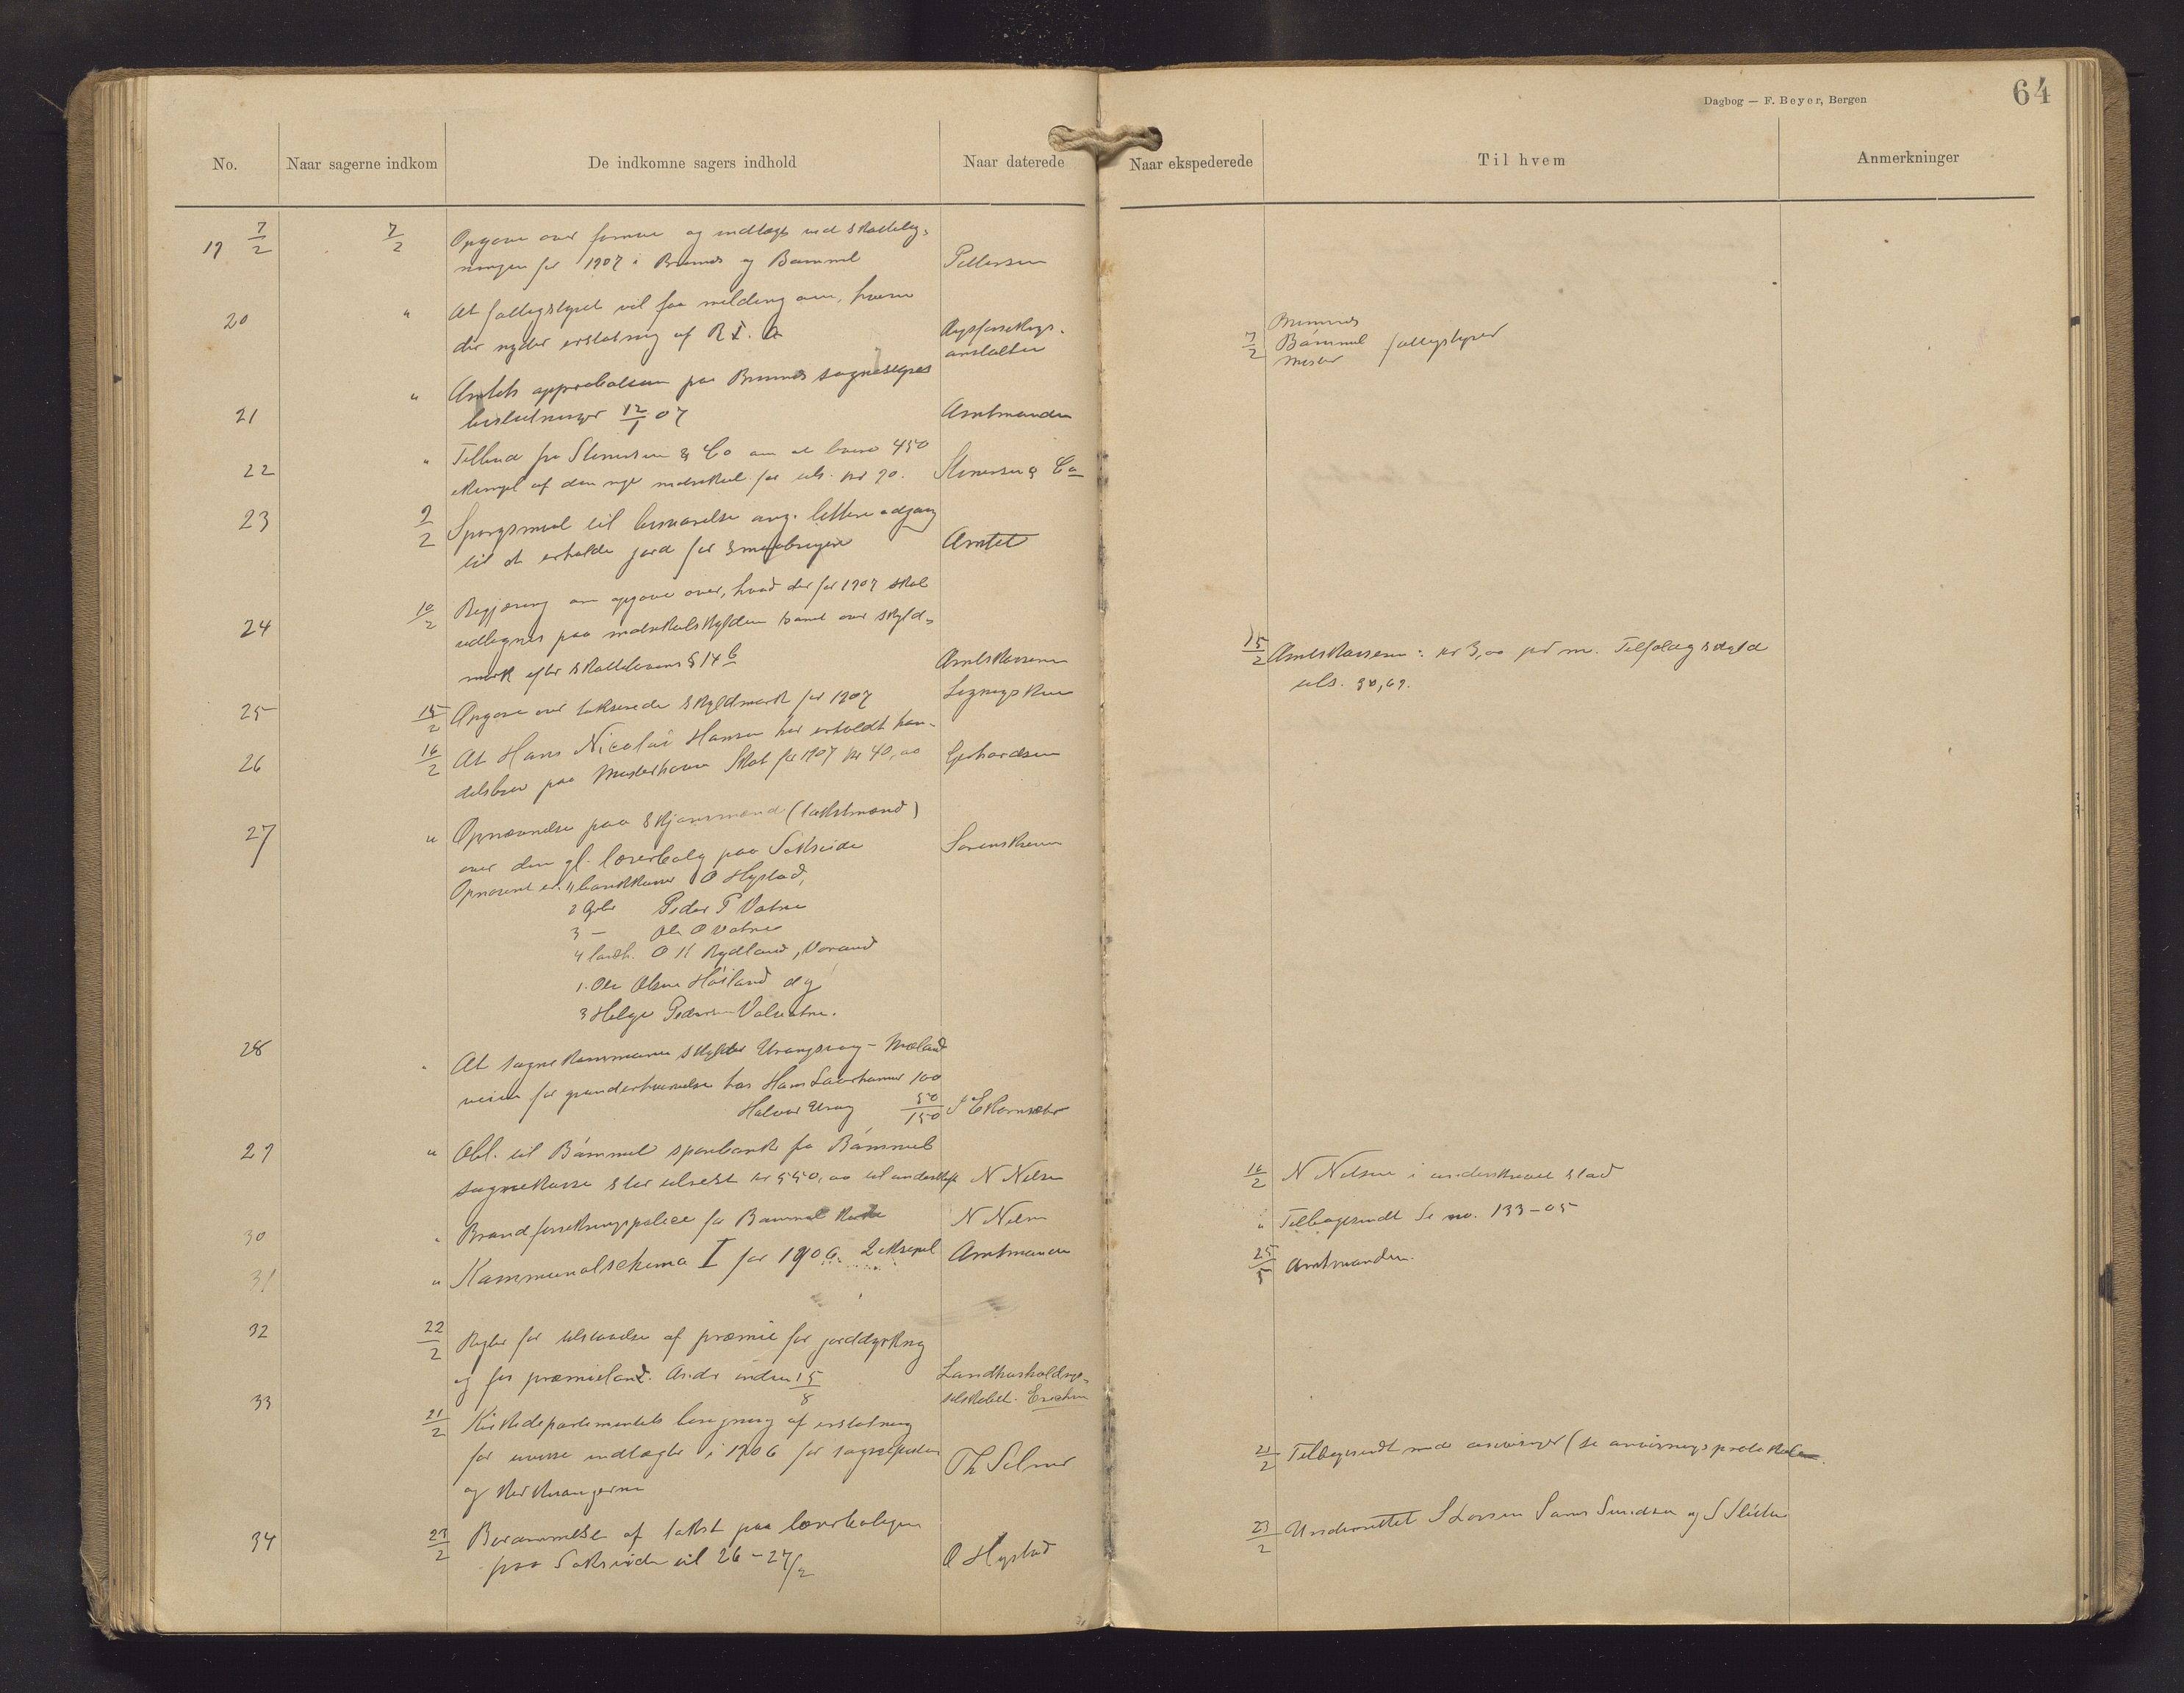 Dagbog — F. Beyer, Bergen
64
No.
Naar sagerne indkom
De indkomne sagers indhold
Naar daterede
Naar ekspederede
Til hvem
Anmerkninger
19 7/2 7/2 Opgave over formue og indtægt ved skattelig-
ningen for 1907 i Bremnes og Bømmel Pettersen
20 " At fattigstyret vil faa melding om, hvem
der nyder erstatning af R. F. A Rigsforsikrings-
anstalten
7/2 Bremnes
Bømmel fattigstyrer
Moster
21 " Amtets approbation paa Bremnes sognestyres
beslutninger 12/1 07 Amtmanden
22 " Tilbud fra Stenersen & Co om at levere 450
eksempl af den nye matrikul for uls. kr 90. Stenersen & Co
23 9/2 Spørgsmaal til besvarelse ang. lettere adgang
til at erholde jord for smaabrugere Amtet
24 10/2 Begjæring om opgave over, hvad der for 1907 skal
udlignes paa matrikulskylden samt over skyld-
mark efter skattelovens § 14 b Amtskasseren
15/2 Amtskasseren: kr 3,00 pr m. Tilfældig skyld
uls. 30,69.
25 15/2 Opgave over takserede skyldmark for 1907 Ligningskom
26 16/2 At Hans Nicolai Hansen har erholdt han-
delsbrev paa Mosterhavn Skat for 1907 kr 40,00 Gerhardsen
27 " Opnævnelse paa skjønsmænd (takstmænd)
over den gl. lærerbolig paa Sakseide Sorenskriveren
Opnævnt er: 1, bankkasser O Hystad,
2 Gbr Peder P Vatne
3 — Ole O Vatne
4 landh. O K Rydland, Vorland
1. Ole Olsen Høiland og
3 Helge Pedersen Valvatne.
28 " At sognekommunen skylder Urangsvaag - Mæland
veien for grunderhvervelse hos Hans Laurhammer 100
Halvor Urang 50
150 S Ekornsæter
29 " Obl. til Bømmel sparebank fra Bømmel
sognekasse stor ulnedst kr 550,00 til underskr N Nilsen
16/2 N Nilsen i underskrevet stand
30 " Brandforsikringspolice for Bømmel kirke N Nilsen
" Tilbagesendt Se no. 133-05
31 " Kommunalschema I for 1906. 2 eksempl Amtmanden
25/5 Amtmanden.
32 22/2 Regler for tilstaaelse af præmie for jorddyrkning
og for præmieland. Ands inden 15/8 Landhusholdnings-
selskabet. Erichsen
33 21/2 Kirkedepartementets beregning af erstatning
for uvisse indtægter i 1906 for sognepresten
og kirkesangerne Th Selmer
21/2 Tilbagesendt med anvisninger (se anvisningsprotokollen.
34 23/2 Berammelse af takst paa lærerboligen
paa Sakseide til 26-27/2 O Hystad
23/2 Underrettet S Larsen